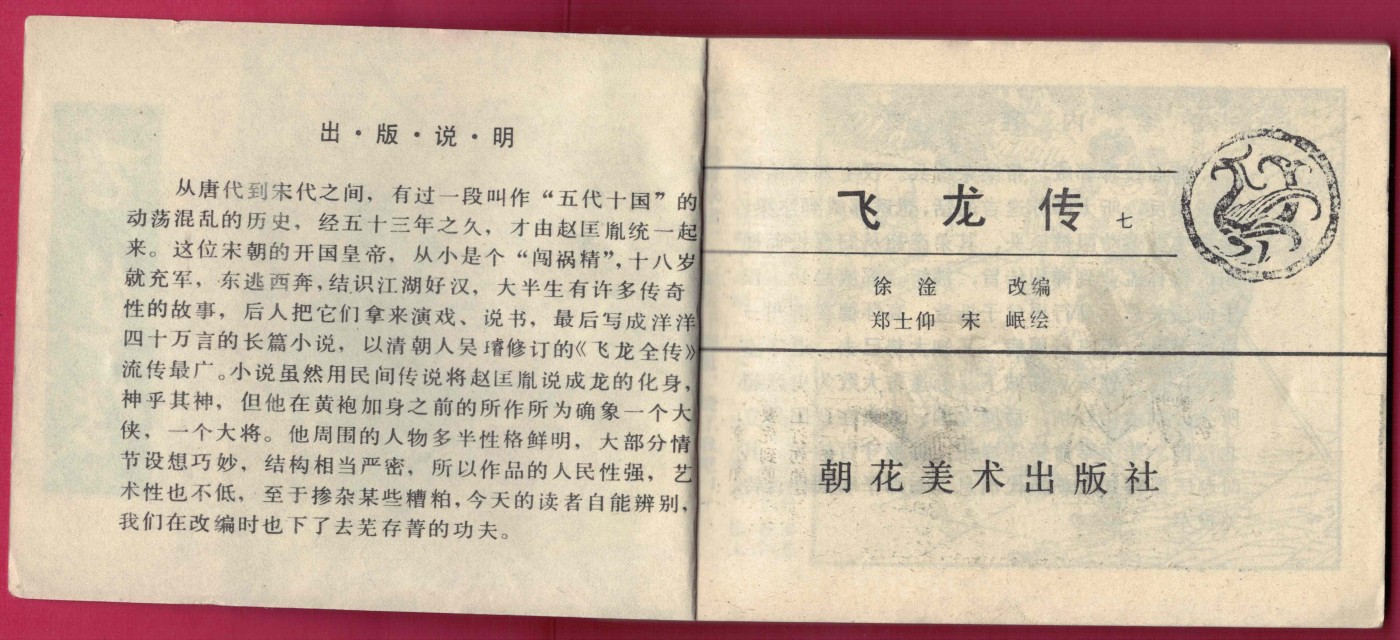 出·版·说·明
从唐代到宋代之间，有过一段叫作“五代十国”的
动荡混乱的历史，经五十三年之久，才由赵匡胤统一起
来。这位宋朝的开国皇帝，从小是个“闯祸精”，十八岁
就充军，东逃西奔，结识江湖好汉，大半生有许多传奇
性的故事，后人把它们拿来演戏、说书，最后写成洋洋
四十万言的长篇小说，以清朝人吴璿修订的《飞龙全传》
流传最广。小说虽然用民间传说将赵匡胤说成龙的化身，
神乎其神，但他在黄袍加身之前的所作所为确象一个大
侠，一个大将。他周围的人物多半性格鲜明，大部分情
节设想巧妙，结构相当严密，所以作品的人民性强，艺
术性也不低，至于掺杂某些糟粕，今天的读者自能辨别，
我们在改编时也下了去芜存菁的功夫。
飞龙传 七
徐淦 改编
郑士仰 宋岷绘
朝花美术出版社